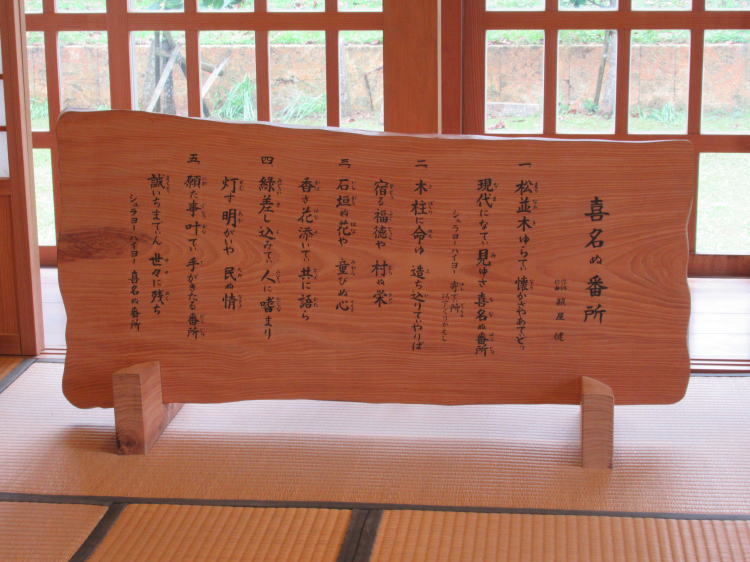 喜名ぬ番所
作詞 作曲 組屋 健
一 松並木ゆらてぃ懐かさやあてどぅ
現代になてぃ見ゆさ 喜名ぬ番所
シュラヨーハイヨー
二 木柱に命ゆ 造ち込りてやりば
宿る福徳や 村ぬ栄
三 石垣ぬ花や 童びぬ心
香さ花添いてぃ 共に語ら
四 緑差し込みてぃ 人に嗜まり
灯す明がいや 民ぬ情
五 願た事叶てぃ 手がきたる番所
誠いちまでぃん 世々に残ち
シュラヨーハイヨー 喜名ぬ番所